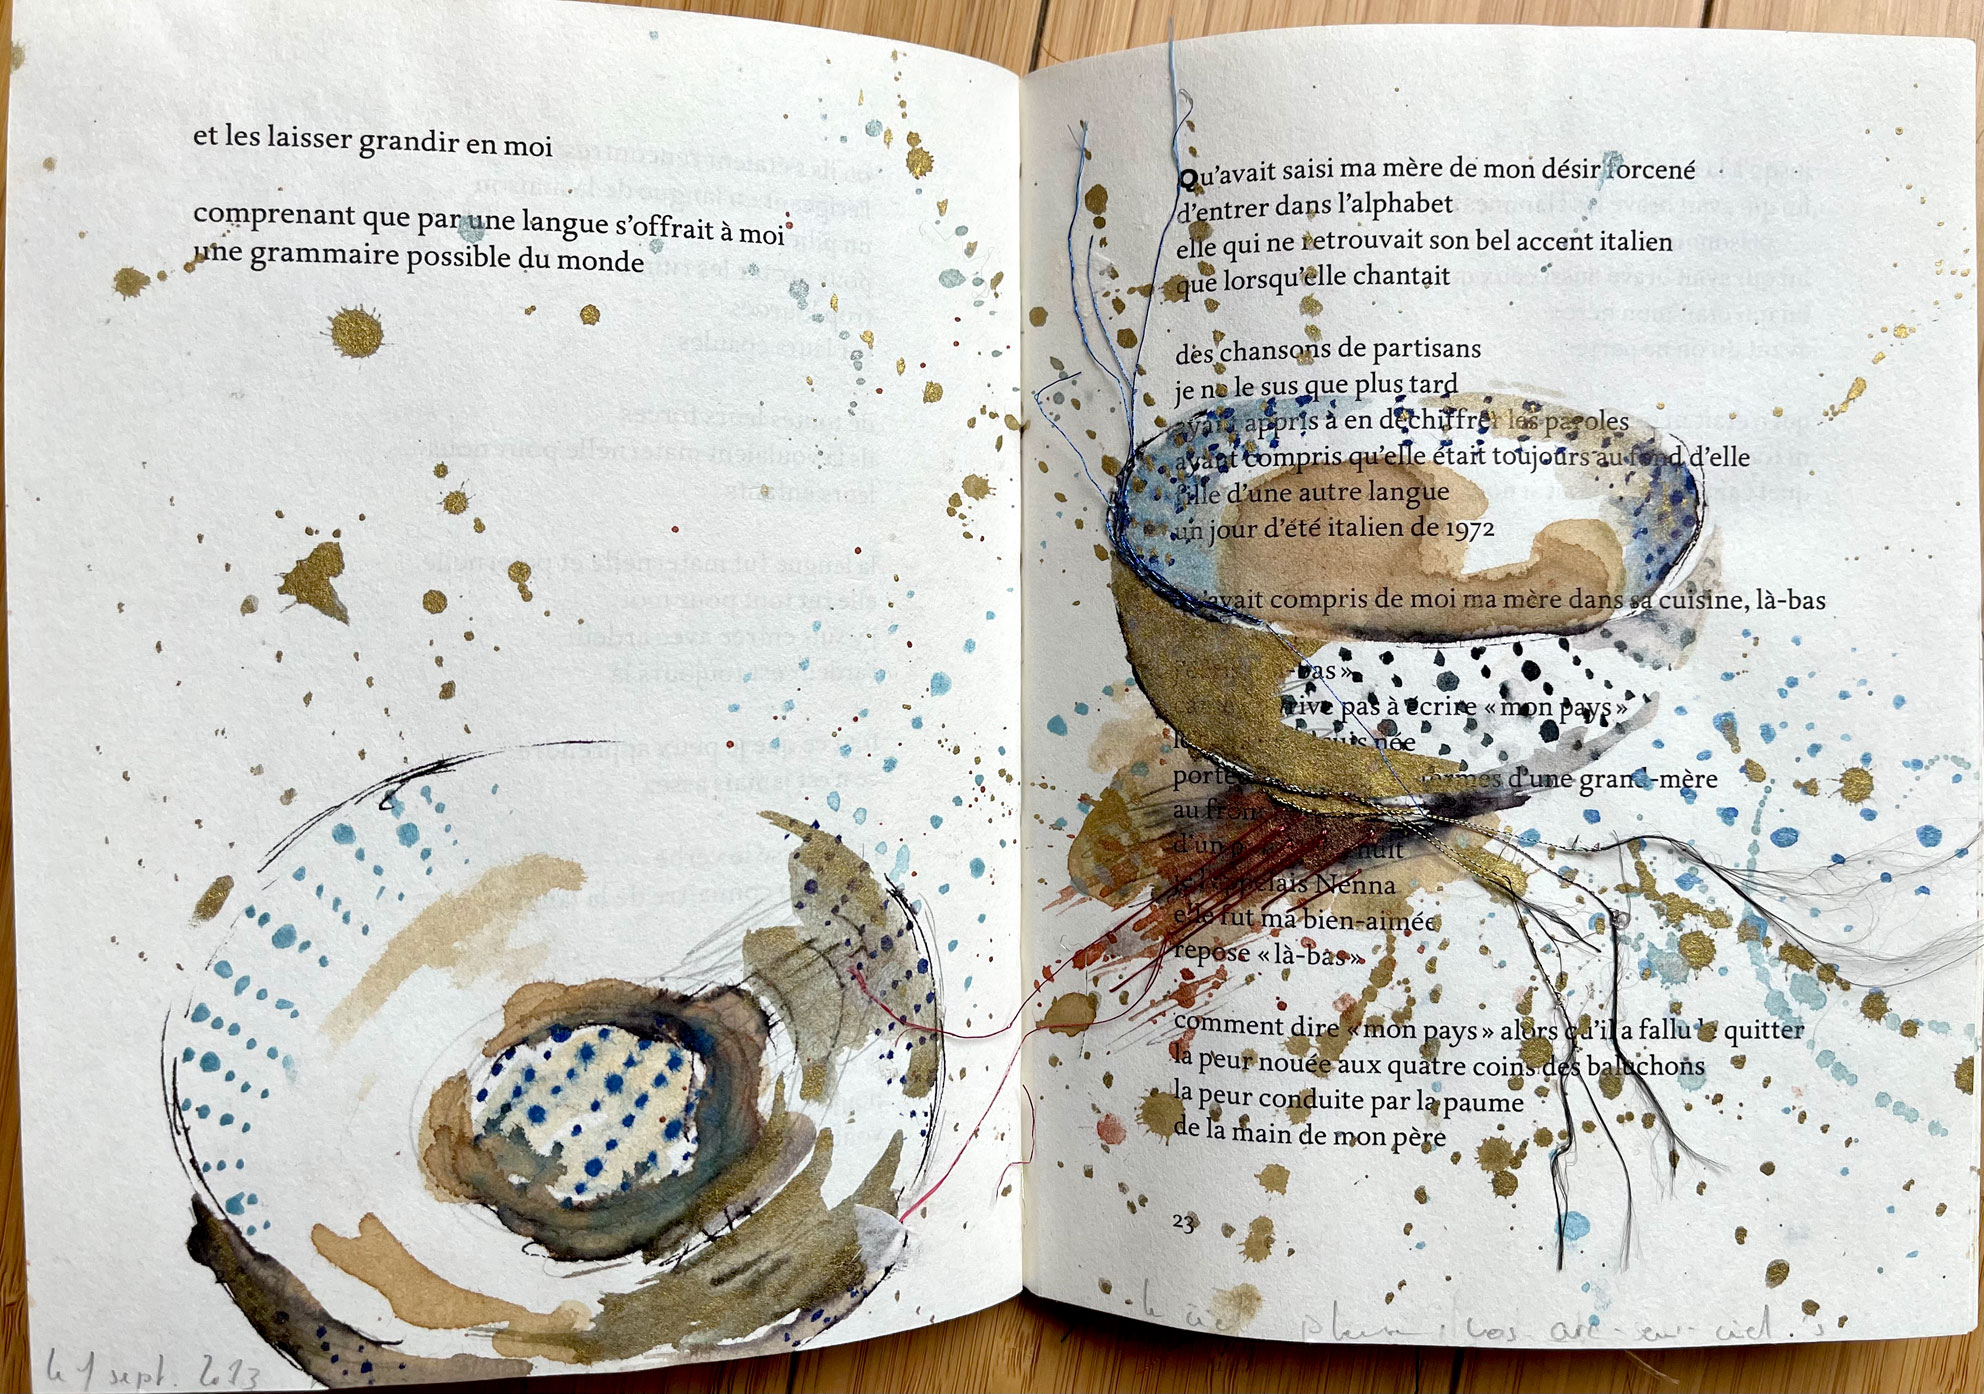 et les laisser grandir en moi
comprenant que par une langue s’offrait à moi
une grammaire possible du monde
le 1 sept. 2013
Qu’avait saisi ma mère de mon désir forcené
d’entrer dans l’alphabet
elle qui ne retrouvait son bel accent italien
que lorsqu’elle chantait
des chansons de partisans
je ne le sus que plus tard
ayant appris à en déchiffrer les paroles
ayant compris qu’elle était toujours au fond d’elle
fille d’une autre langue
un jour d’été italien de 1972
qu’avait compris de moi ma mère dans sa cuisine, là-bas
j’écris « là-bas »
pas à écrire « mon pays »
suis née
porte d’une grand-mère
au front
d’un nuit
je l’appelais Nenna
elle fut ma bien-aimée
repose « là-bas »
comment dire « mon pays » alors qu’il a fallu le quitter
la peur nouée aux quatre coins des baluchons
la peur conduite par la paume
de la main de mon père
23
arc-en-ciel